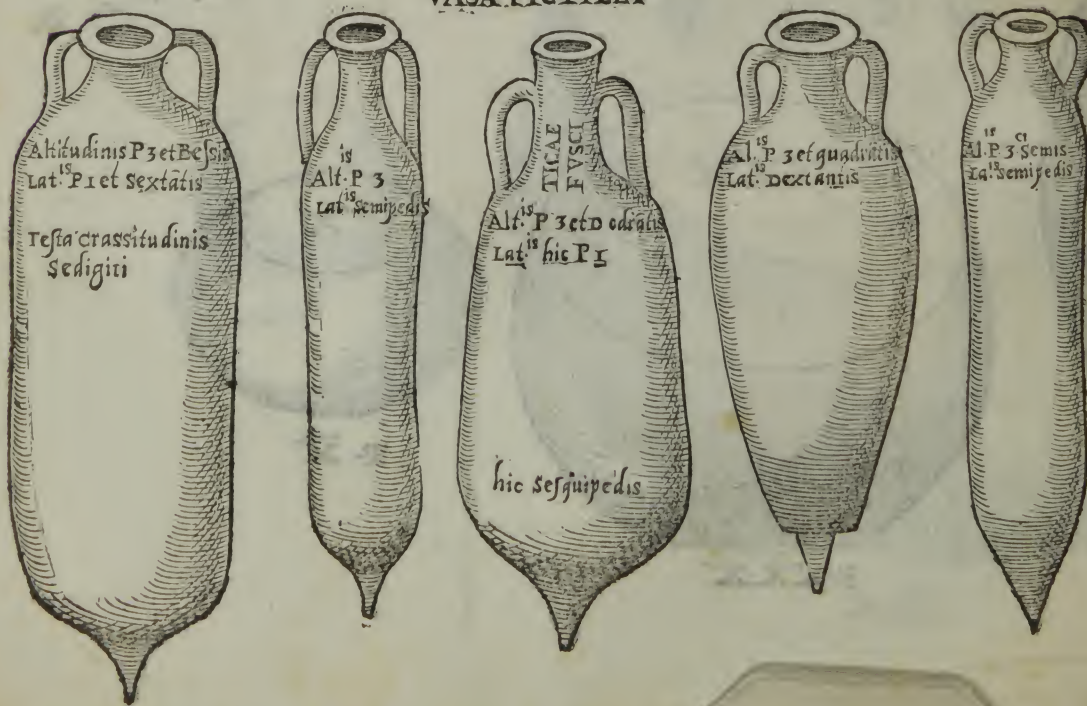 VASA FICTILIA
Altitudinis P 3 et Bessis
Lat.is P 1 et Sextātis
Testa crassitudinis
Sedigiti
Alt.is P 3
Lat.is Semipedis
TICAE
FVSCI
Alt.is P 3 et Dodrātis
Lat.is hic P 1
hic Sesquipedis
Al.is P 3 et quadrātis
Lat.is Dextantis
Al.is P. 3 Semis
La.is Semipedis